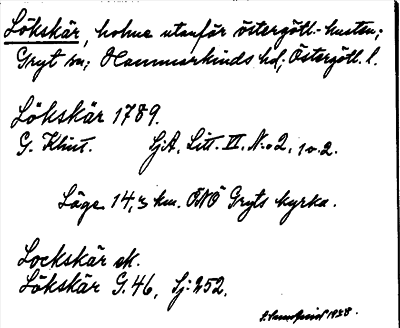 Lökskär, holme utanför östergötl.-kusten;
Gryt sn; Hammarkinds hd; Östergötl. l.
Lökskär 1789.
G. Klint. Sj.A. Litt. VI. N:o 2, 1 o. 2.
Läge 14,3 km. ÖNÖ Gryts kyrka.
Lockskär ek.
Lökskär G. 46, Sj: 252.
1928.